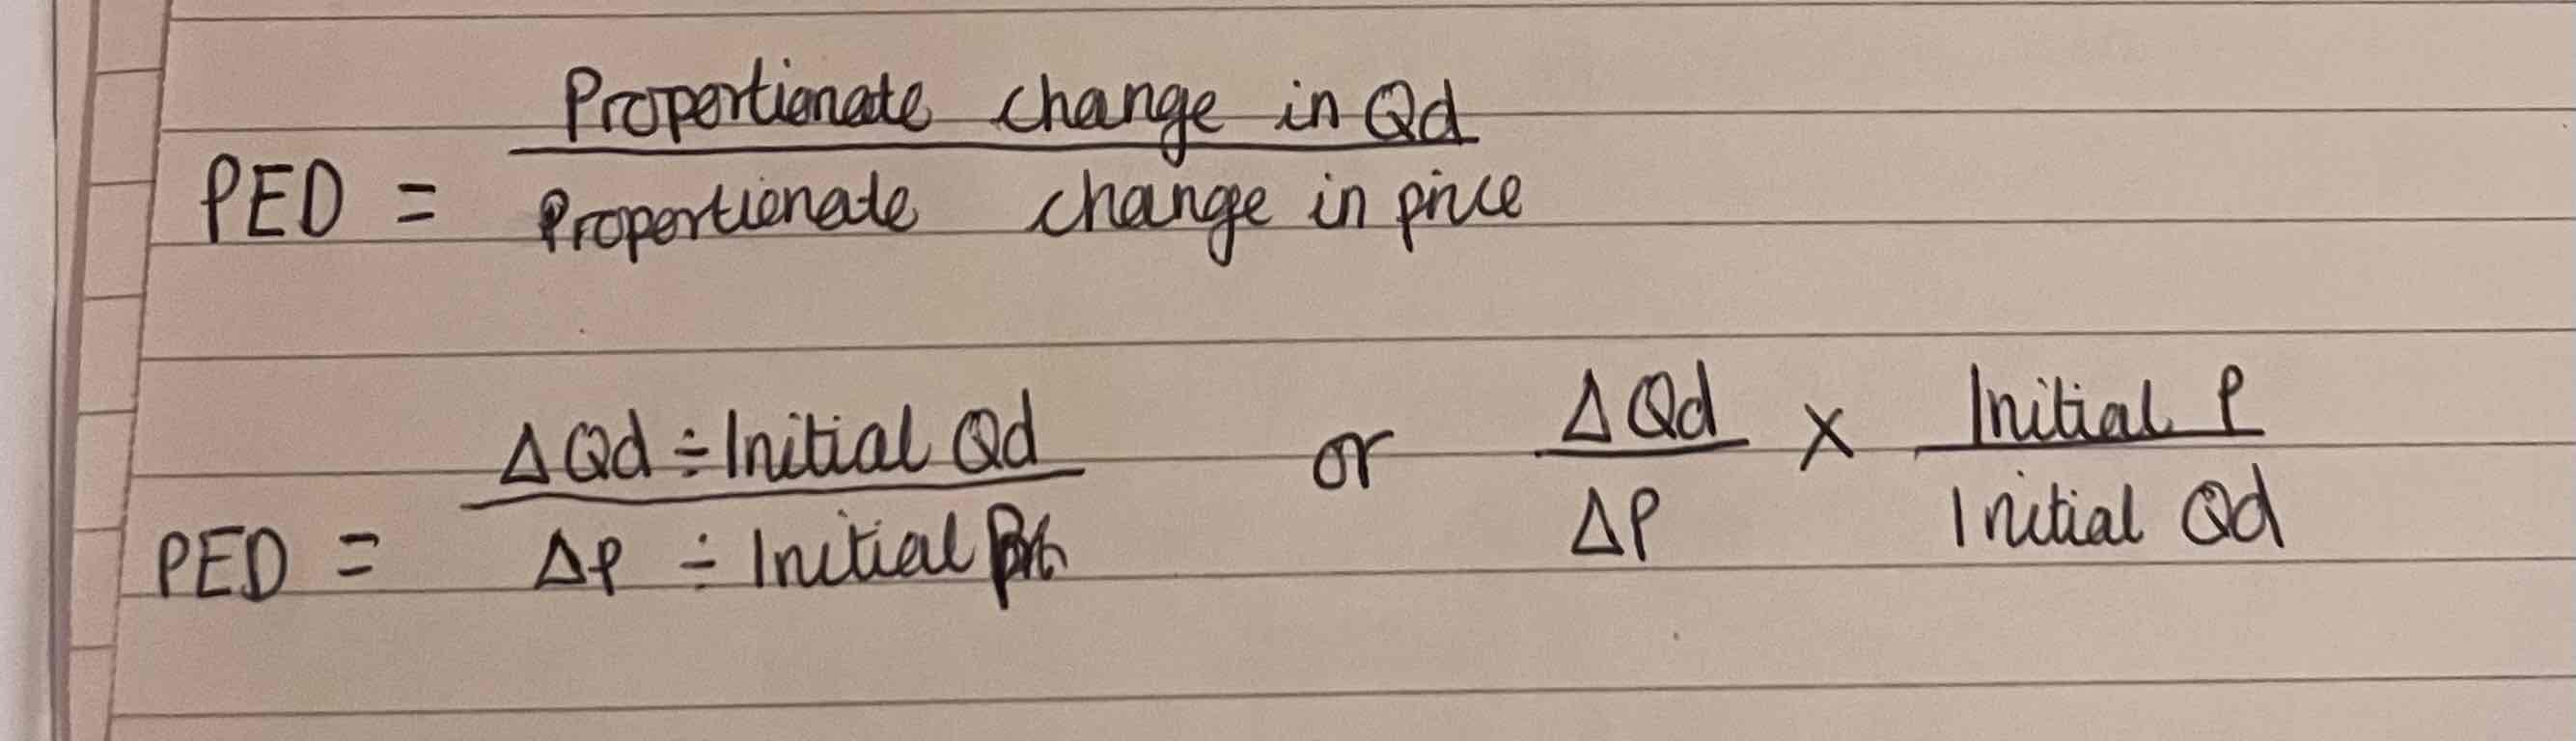 Proportionate change in Qd
PED = Proportionate change in price
ΔQd ÷ Initial Qd or ΔQd × Initial P
PED = ΔP ÷ Initial ΔP Initial Qd